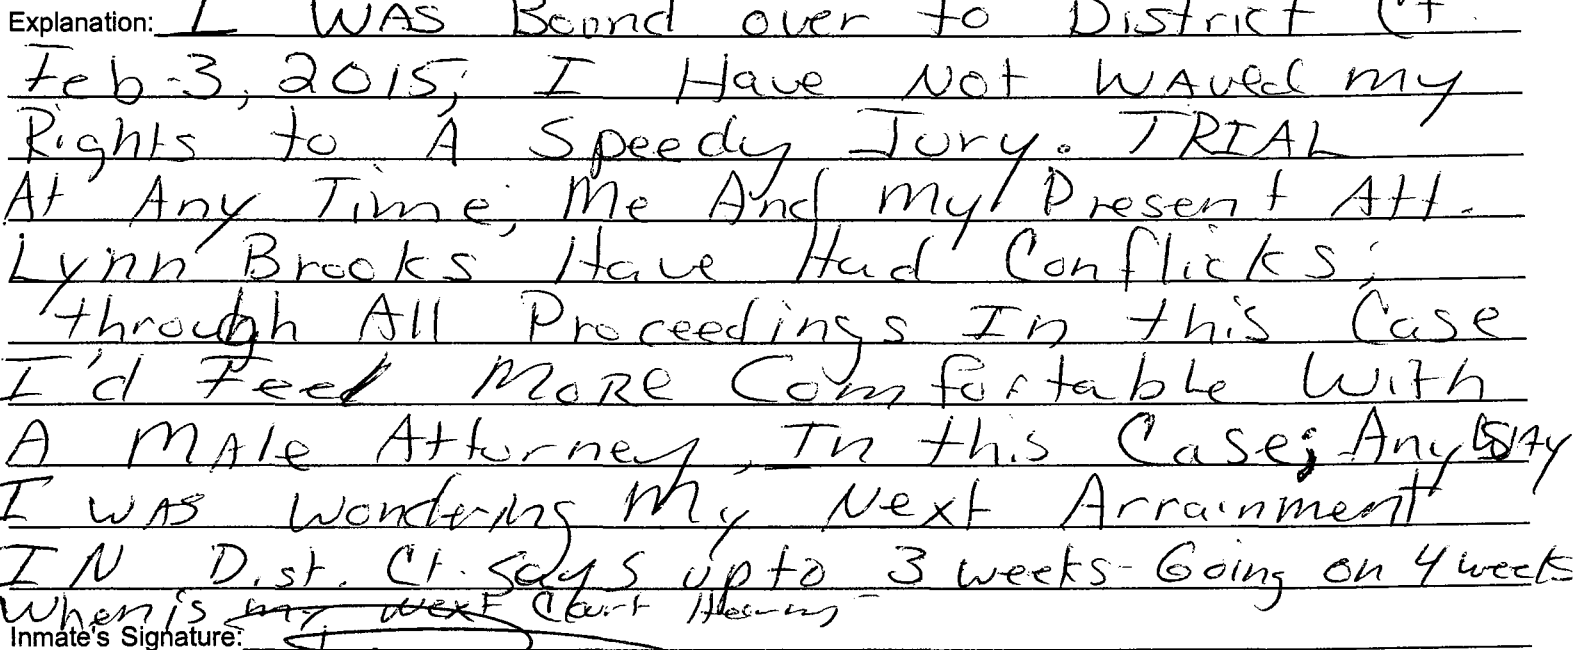 Explanation: I WAS Bound over to District Ct.
Feb-3, 2015; I Have Not WAved my
Rights to A Speedy Jury. TRIAL
At Any Time, Me And my Present Att.
Lynn Brooks Have Had Conflicks;
through All Proceedings In this Case
I'd Feel MORE Comfortable With
A MAle Attorney, In this Case; Any
I WAS Wondering My Next Arrainment
IN Dist. Ct. says upto 3 weeks - Going on 4 weeks
When is my next Court Hearing
Inmate's Signature: